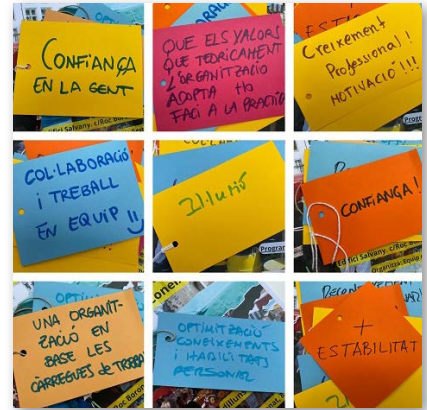 CONFIANÇA
EN LA GENT
QUE ELS VALORS
QUE TEÒRICAMENT
L'ORGANITZACIÓ
ADOPTA HO
FACI A LA PRÀCTIC
+
ESTABIL
Creixement
Professional!
MOTIVACIÓ!!!
COL·LABORACIÓ
i TREBALL
EN EQUIP !!
Il·lusió
Progra
CONFIANÇA!
Edifici Salvany. c/Roc Bo
UNA ORGANIT-
ZACIÓ EN
BASE LES
CÀRREGUES de TREBA
OPTIMITZACIÓ
CONEIXEMENTS
i HABILITATS
PERSONAL
+
ESTABILITAT